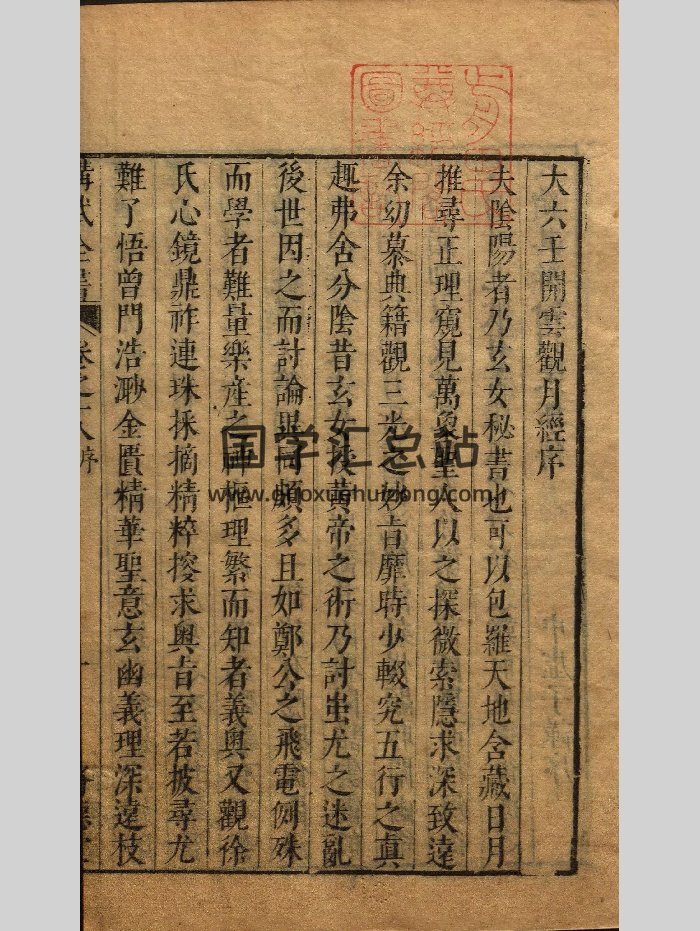 大六壬開雲觀月經序
夫陰陽者乃玄女秘書也可以包羅天地含藏日月
推尋正理窺見萬象聖人以之探微索隱求深致遠
余幼慕典籍觀三光之妙旨靡時少輟究五行之真
趣弗舍分陰昔玄女授黃帝之術乃討蚩尤之迷亂
後世因之而討論異同頗多且如鄭公之飛電例殊
而學者難量樂產之神樞理繁而知者義輿又觀徐
氏心鏡鼎祚連珠採摘精粹搜求輿旨至若披尋尤
難了悟曾門浩渺金匱精華聖意玄幽義理深遠枝
卷之十八 序
国学汇总站
www.guoxuehuizong.com